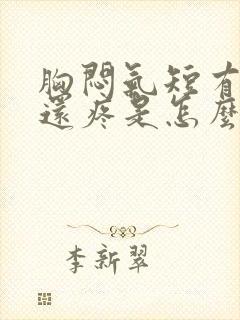 胸悶氣短有
還疼是怎麼
李新翠